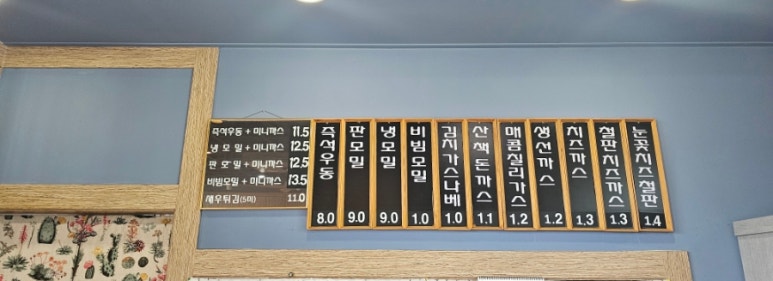 즉석우동 + 미니까스 11.5
냉모밀 + 미니까스 12.5
판모밀 + 미니까스 12.5
비빔모밀 + 미니까스 13.5
새우튀김(5미) 11.0
즉석우동 8.0
판모밀 9.0
냉모밀 9.0
비빔모밀 1.0
김치가스나베 1.0
산책돈까스 1.1
매콤칠리가스 1.2
생선까스 1.2
치즈까스 1.3
철판치즈까스 1.3
눈꽃치즈철판 1.4